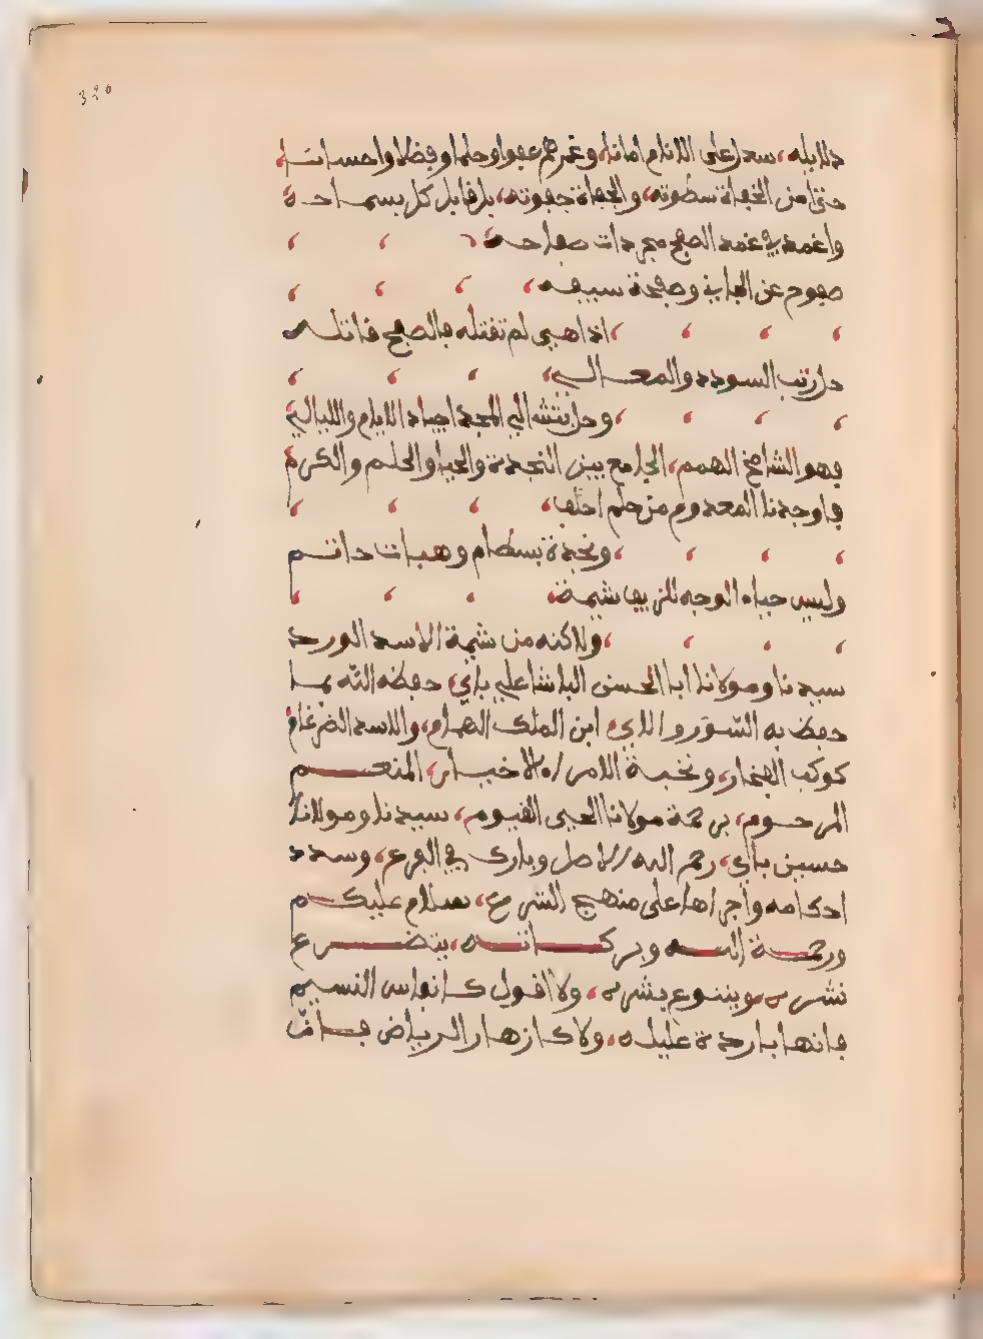 320
سدل على الانام امانا، وغمرهم عفوا وحلما وفضلا واحسانا،
حتى امن الجفاة سطوته، والجفاة جفوته، بل قابل كل بسماحة
واغمد في غمد الصفح مجردات صفاحه،
صفوح عن الجاني وصفحة سيفه،
اذا هي لم تقتله بالصفح قاتله
حل رتب السودد والمعالي،
وحل بنشه الي المجد اجياد الايام والليالي،
فهو الشامخ الهمم، الجامع بين النجدة والحيا والحلم والكرم
فاوجدنا المعدوم من حلم احنف،
ونجدة بسطام وهبات حاتم
وليس حياء الوجه للزيف شيمة،
ولاكنه من شيمة الاسد الورد
سيدنا ومولانا ابا الحسن الباشا علي باي، حفظه الله بما
حفظ به السّور والاي، ابن الملك الهمام، والاسد الضرغام
كوكب الفخار، ونخبة الامراء الاخيار، المنعم
المرحوم، برحمة مولانا الحيي القيوم، سيدنا ومولانا
حسين باي، رحم الله الاصل وبارك في الفرع، وسدد
احكامه واجراها على منهج الشرع، سلام عليكم
ورحمة الله وبركاته، يتضرع
نشره ويتنوع بشره، ولا اقول كانفاس النسيم
فانها باردة عليله، ولا كازهار الرياض فان